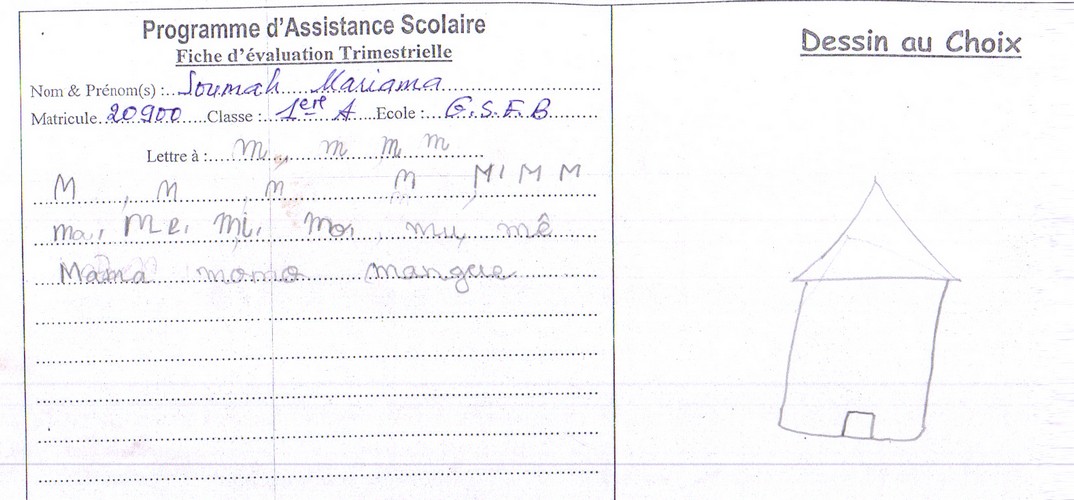 Programme d'Assistance Scolaire
Fiche d'évaluation Trimestrielle
Nom & Prénom(s) : Soumah Mariama
Matricule 20900 Classe : 1ère A Ecole : G.S.F.B
Lettre à : m, m m m
M, m, m m M, M M M
ma, me, mi, mo, mu, mê
Mama momo mangue
Dessin au Choix